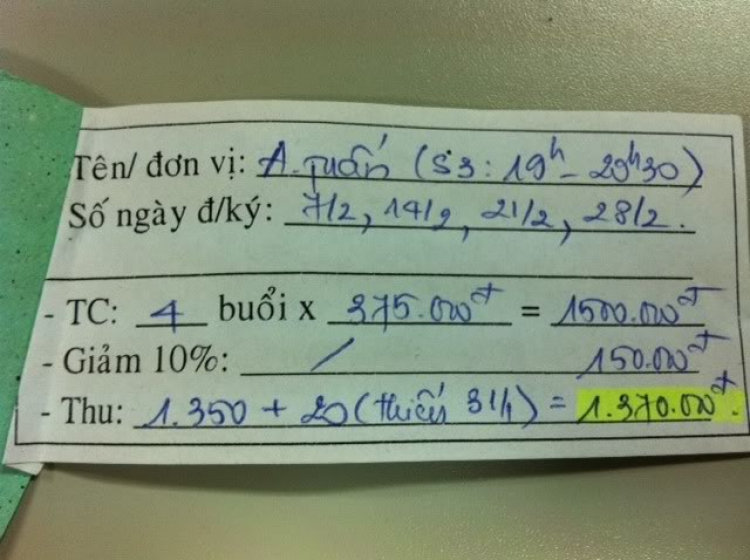 Tên/ đơn vị: A. Tuấn (S3: 19h - 20h30)
Số ngày đ/ký: 7/2, 14/2, 21/2, 28/2.
- TC: 4 buổi x 375.000đ = 1500.000đ
- Giảm 10%: / 150.000đ
- Thu: 1.350 + 20 (thiếu 31/1) = 1.370.000đ.